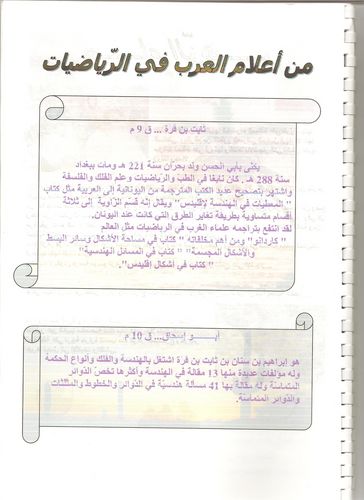 من أعلام العرب في الرّياضيات
ثابت بن قرة ... ق 9 م
يكنّى بأبي الحسن ولد بحرّان سنة 221 هـ ومات ببغداد
سنة 288 هـ. كان نابغا في الطبّ والرّياضيات وعلم الفلك والفلسفة
واشتهر بتصحيح عديد الكتب المترجمة من اليونانية إلى العربية مثل كتاب
" المعطيات في الهندسة لإقليدس" ويقال إنّه قسّم الزّاوية إلى ثلاثة
أقسام متساوية بطريقة تغاير الطرق التي كانت عند اليونان.
لقد انتفع بتراجمه علماء الغرب في الرياضيات مثل العالم
" كاردانو" ومن أهمّ مخلفاته " كتاب في مساحة الأشكال وسائر البسط
والأشكال المجسمة" " كتاب في المسائل الهندسية"
" كتاب في أشكال إقليدس".
أبــو إسحاق... ق 10 م
هو إبراهيم بن سنان بن ثابت بن قرة اشتغل بالهندسة والفلك وأنواع الحكمة
وله مؤلفات عديدة منها 13 مقالة في الهندسة وأكثرها تخصّ الدّوائر
المتماسّة وله مقالة بها 41 مسألة هندسيّة في الدّوائر والخطوط والمثلثات
والدّوائر المتماسّة.